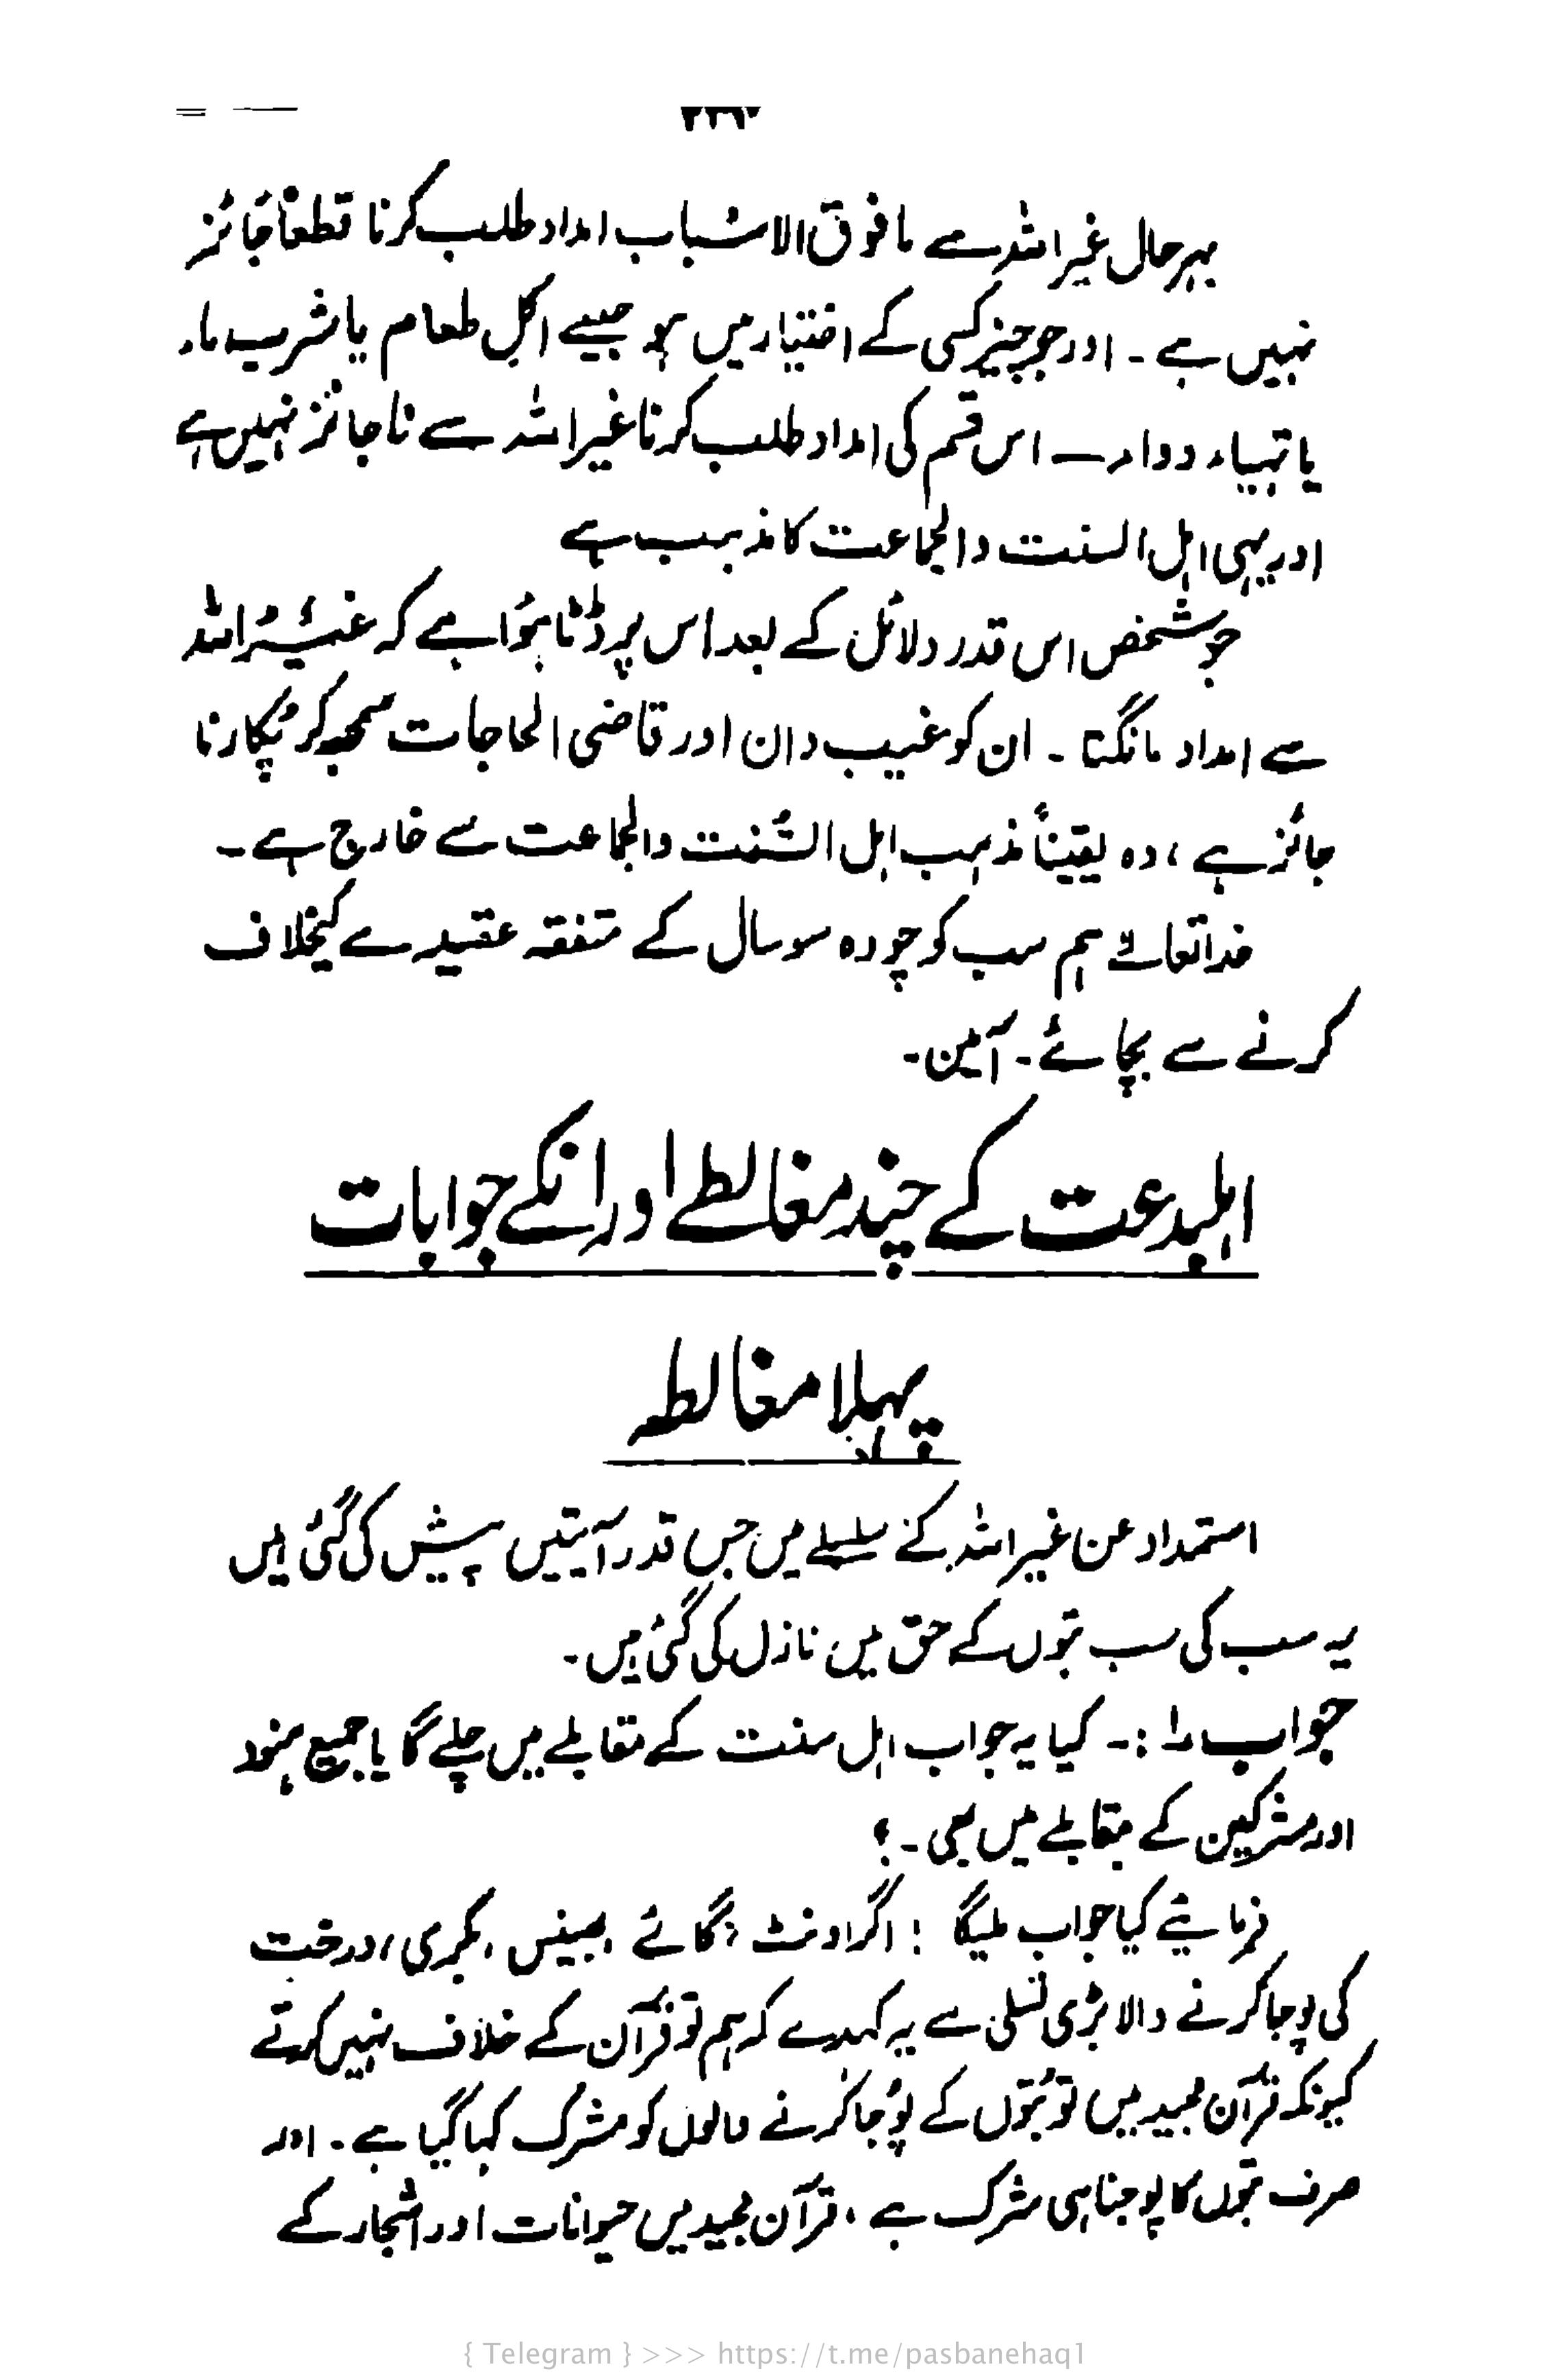 بہرحال غیراللہ سے مافوق الاسباب امداد طلب کرنا قطعاً جائز
نہیں ہے ۔ اور جو چیز کسی کے اختیار میں ہو جیسے اکلِ طعام یا شربِ ماء
یا تہیاء دواء ۔ اس قسم کی امداد طلب کرنا غیراللہ سے ناجائز نہیں ہے
اور یہی اہل السنت والجماعت کا مذہب ہے
جو شخص اس قدر دلائل کے بعد اس پر ڈٹا ہُوا ہے کہ غیرُ اللہ
سے امداد مانگنا ۔ ان کو غیب دان اور قاضی الحاجات سمجھ کر پُکارنا
جائز ہے ، وہ یقیناً مذہب اہل السُّنت والجماعت سے خارج ہے ۔
خدا تعالےٰ ہم سب کو چودہ سو سال کے متفقہ عقیدے کیخلاف
کرنے سے بچائے ۔ آمین ۔
اہلبدعت کے چند مغالطے اور انکے جوابات
پہلا مغالطہ
استمداد عن غیراللہ کے سلسلے میں جس قدر آیتیں پیش کی گئی ہیں
یہ سب کی سب بتوں کے حق میں نازل کی گئی ہیں ۔
جواب ۱ :۔ کیا یہ جواب اہل سنت کے مقابلے میں چلے گا یا جمیع ہنود
اور مشرکین کے مقابلے میں بھی ۔ ؟
فرمایئے کیا جواب ملیگا ! اگر اونٹ ، گائے ، بھینس ، بکری ، درخت
کی پوجا کرنے والا بڑی تسلی سے یہ کہدے کہ ہم تو قرآن کے خلاف نہیں کرتے
کیونکہ قرآن مجید میں تو بُتوں کے پُوجا کرنے والوں کو مشرک کہا گیا ہے ۔ اور
صرف بتوں کا پوجنا ہی شرک ہے ، قرآن مجید میں حیوانات اور اشجار کے
{ Telegram } >>> https://t.me/pasbanehaq1